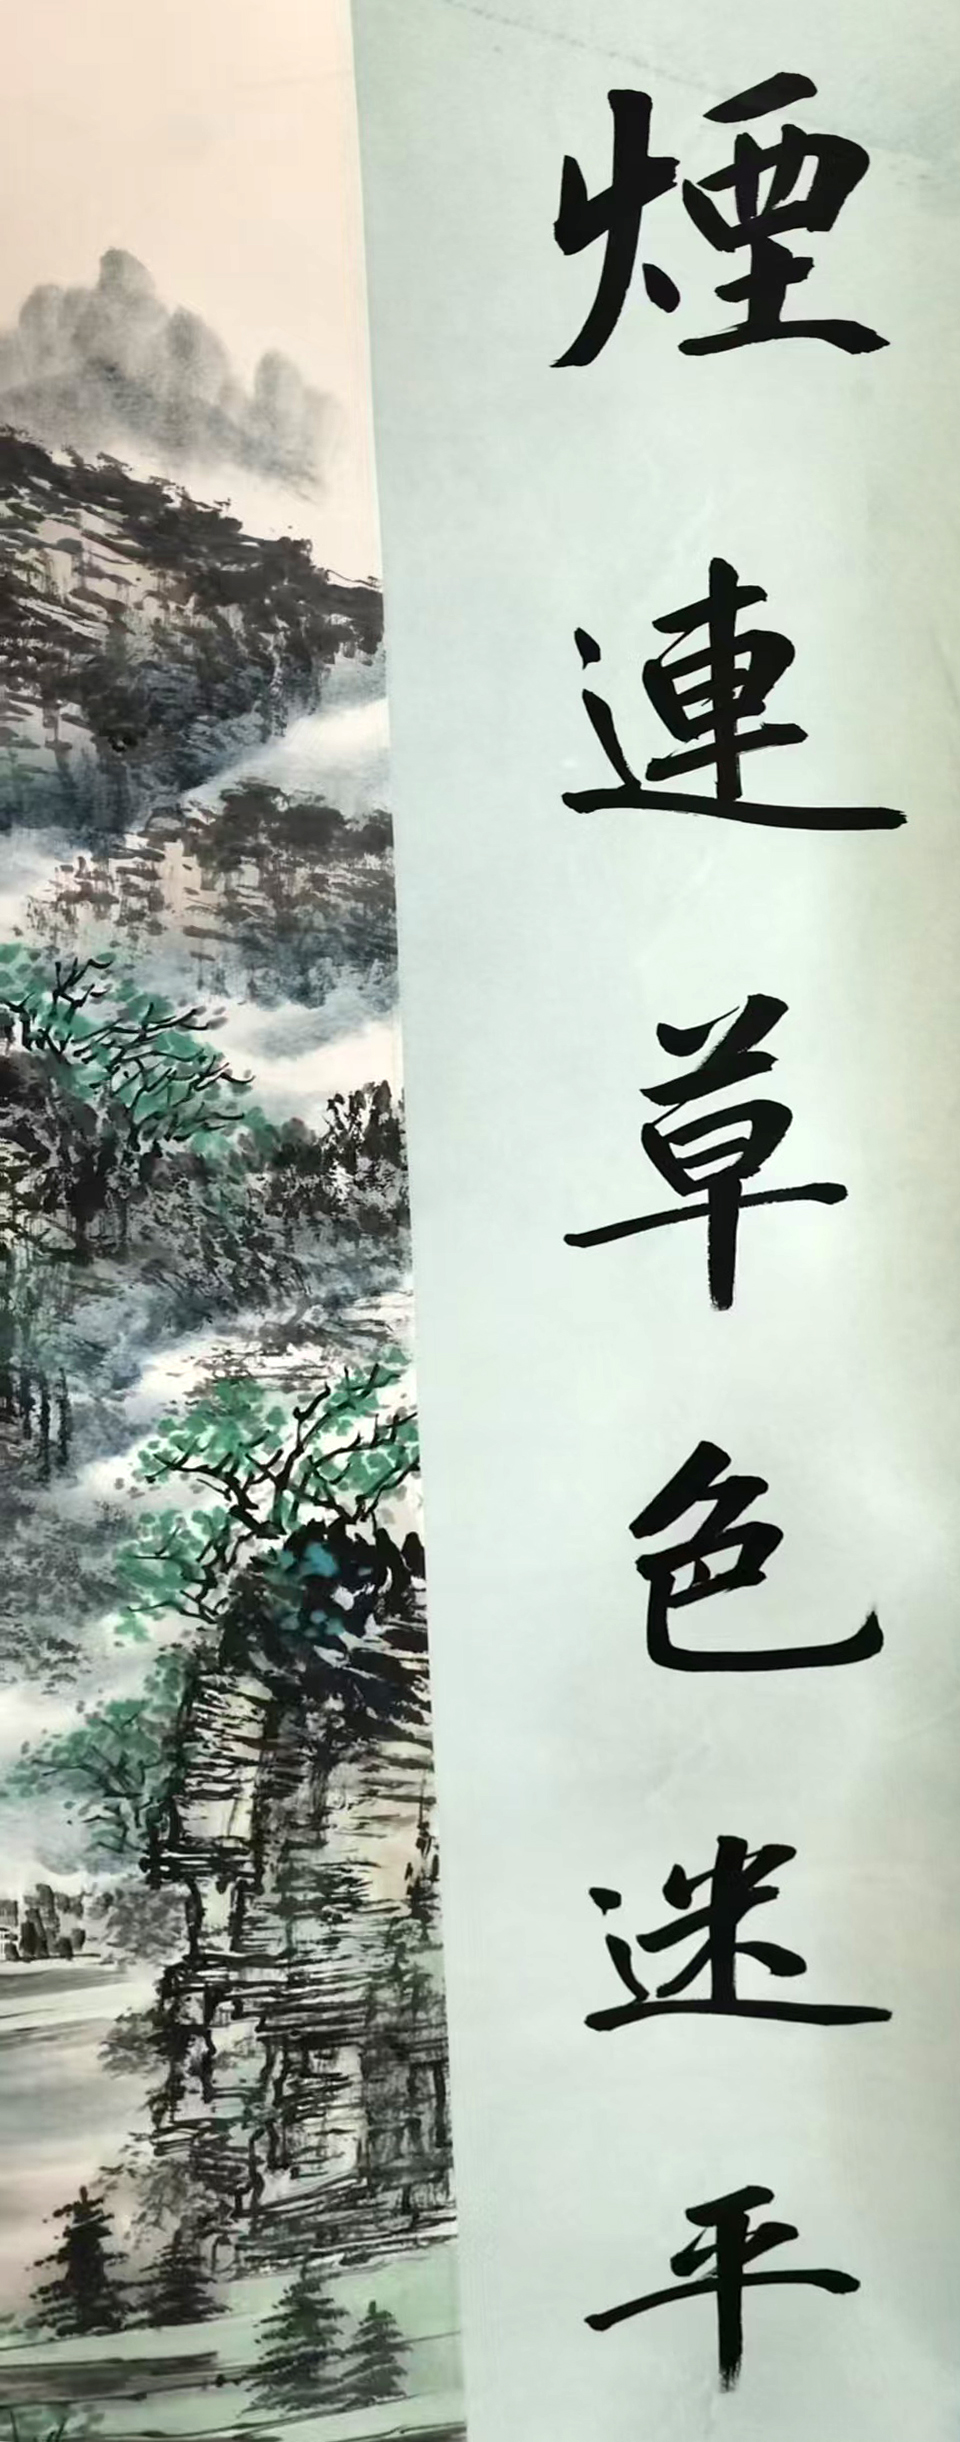 煙連草色迷平